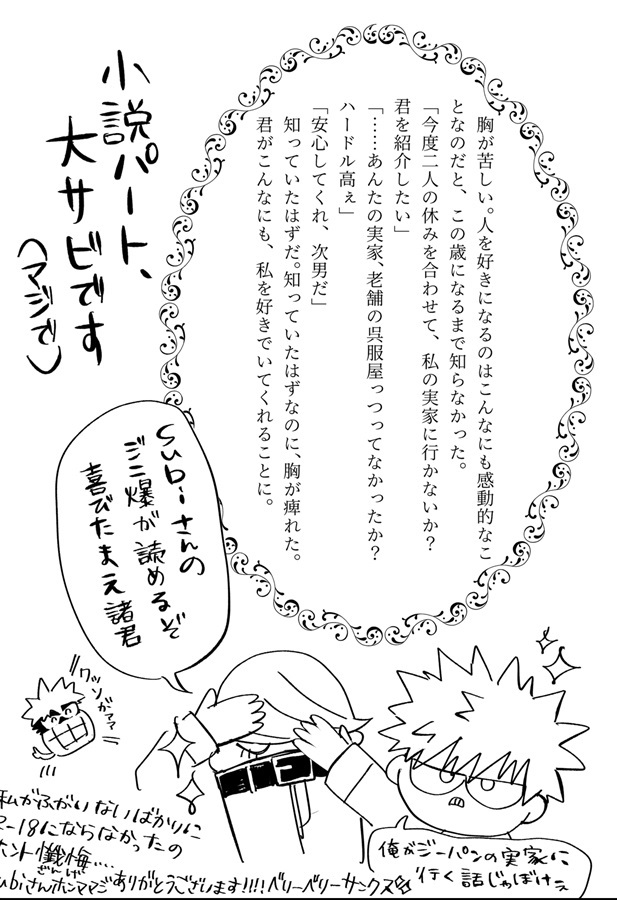 胸が苦しい。人を好きになるのはこんなにも感動的なこ
となのだと、この歳になるまで知らなかった。
「今度二人の休みを合わせて、私の実家に行かないか？
君を紹介したい」
「……あんたの実家、老舗の呉服屋っつってなかったか？
ハードル高ぇ」
「安心してくれ、次男だ」
知っていたはずだ。知っていたはずなのに、胸が痺れた。
君がこんなにも、私を好きでいてくれることに。
小説パート、
大サビです
(マジで)
Subiさんの
ジニ爆が読めるぞ
喜びたまえ諸君
ワッソがアマ
俺がジーパンの実家に
行く話じゃぼけぇ
私がふがいないばかりに
R-18にならなかったの
ホント懺悔....
ざんげ
ubiさんホンママジありがとうございます!!!!ベリーベリーサンクス